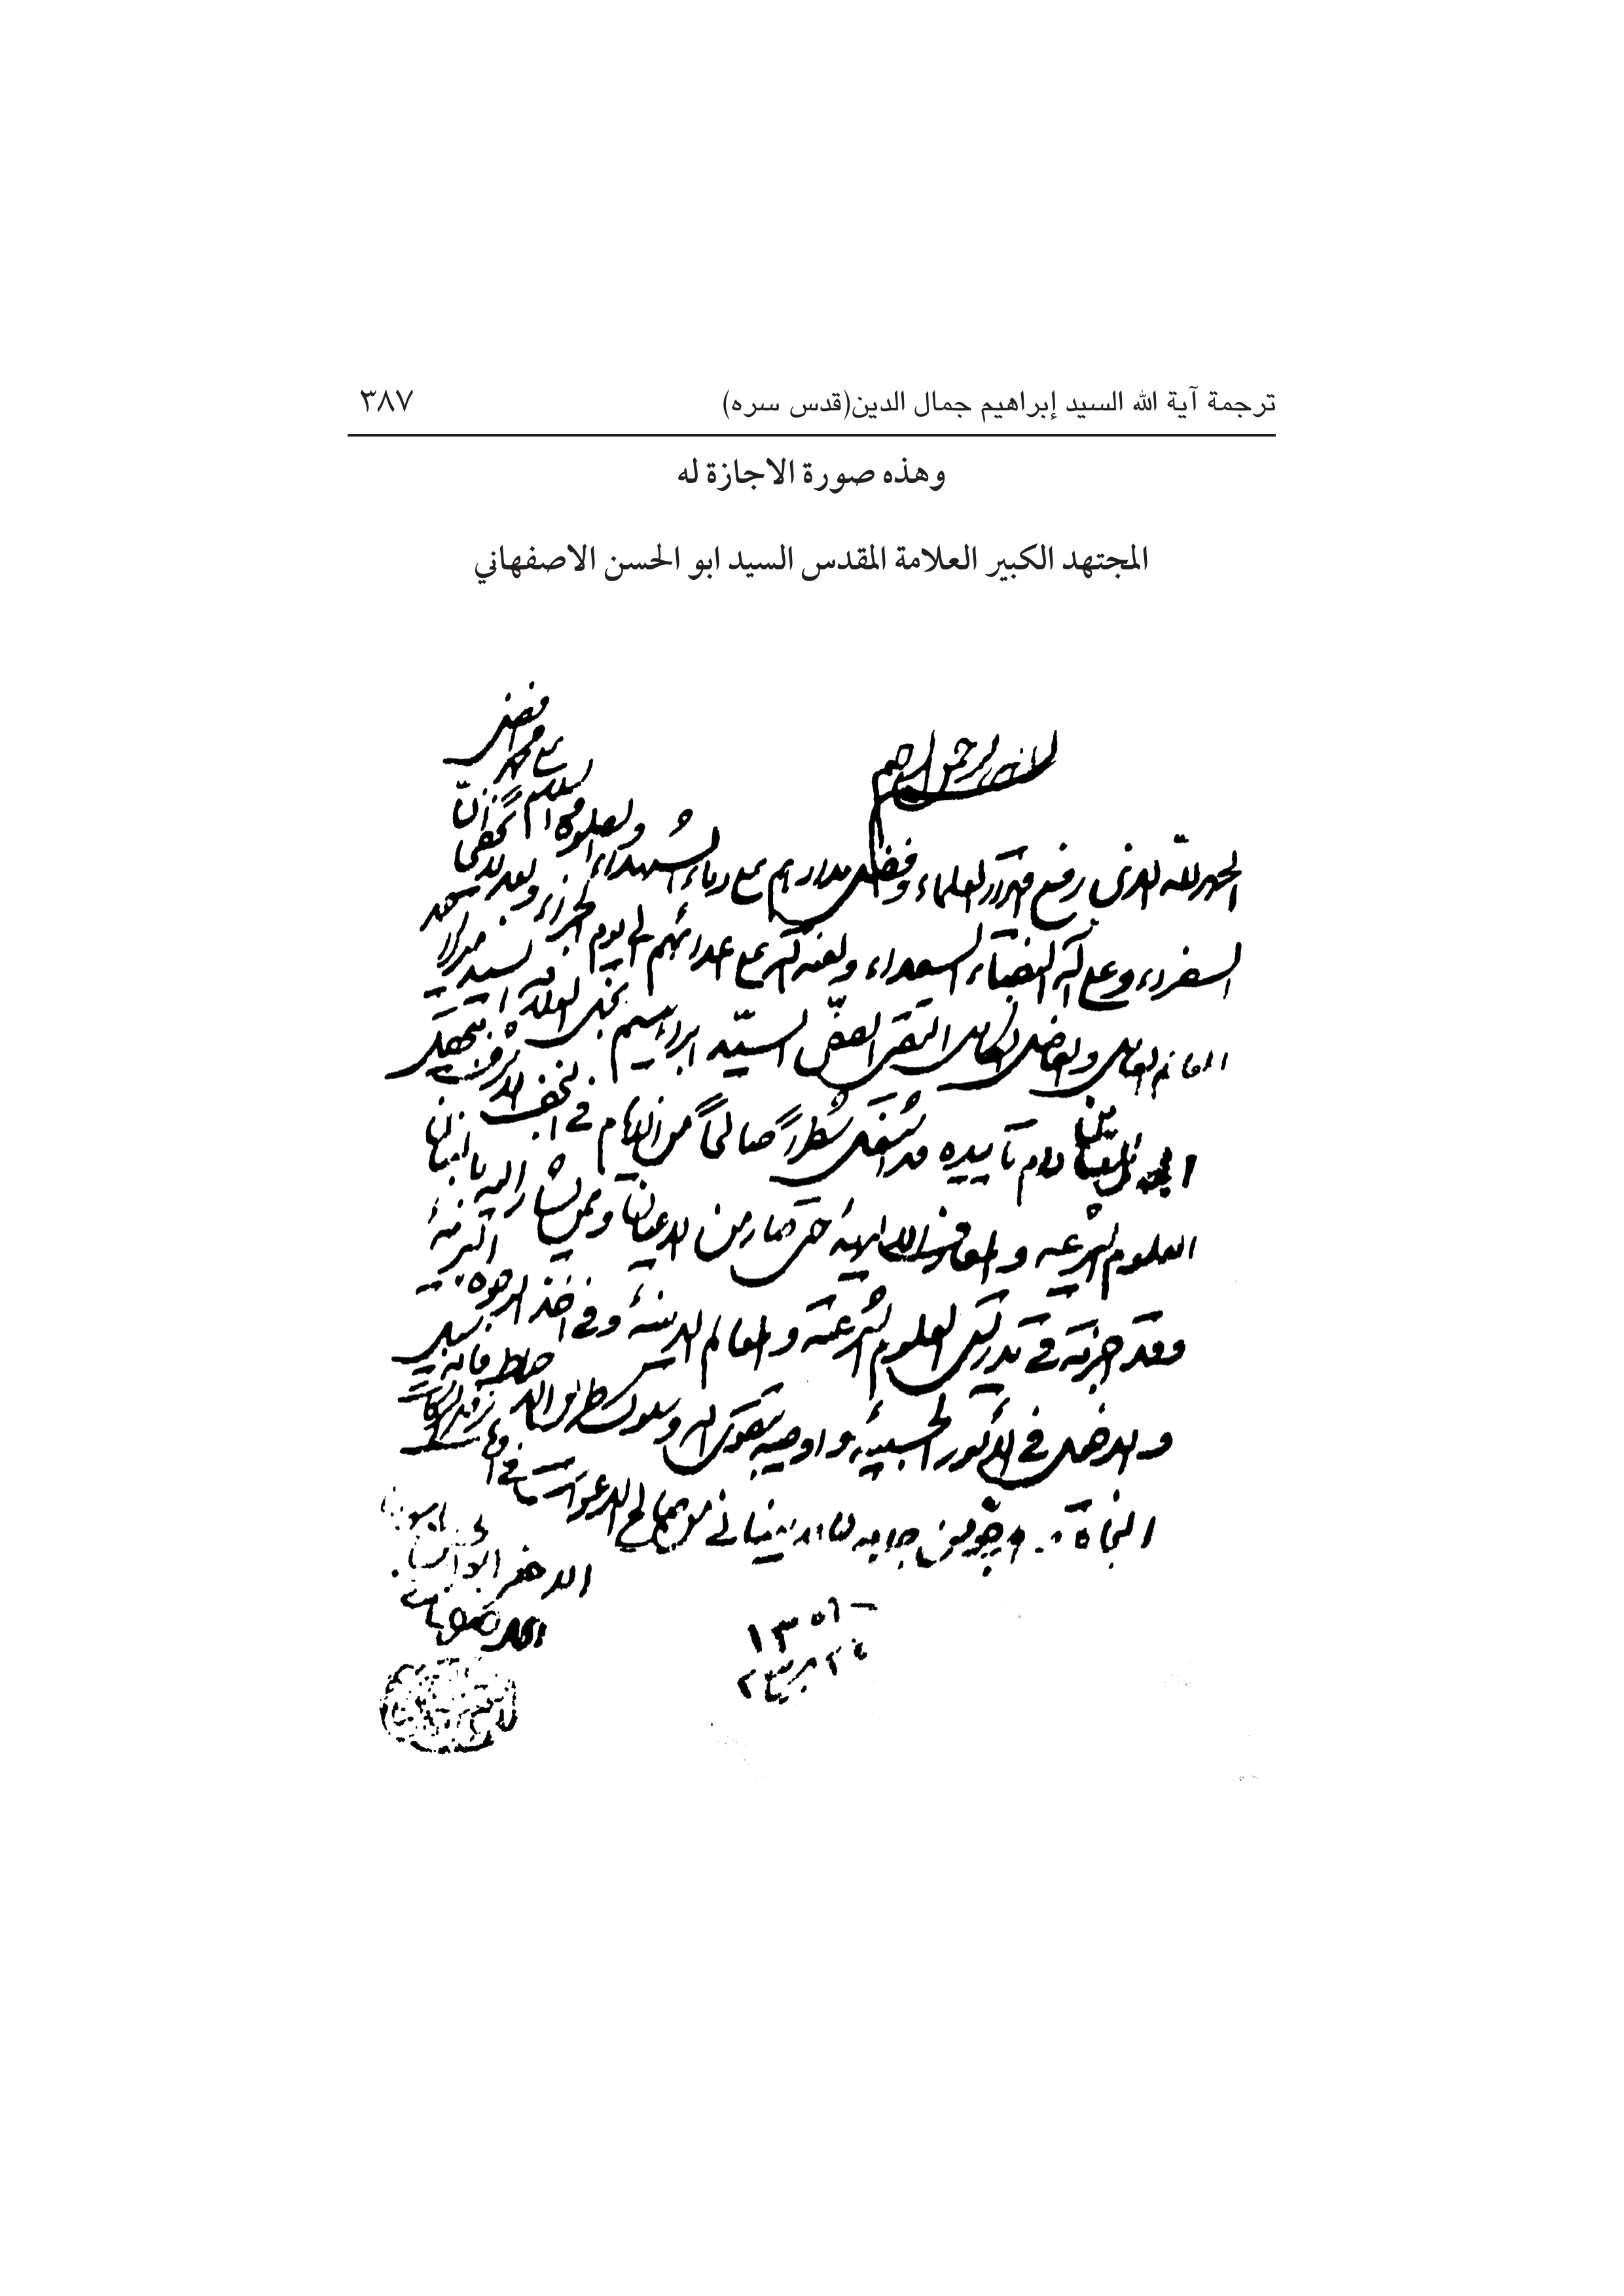 ترجمة آية الله السيد إبراهيم جمال الدين(قدس سره) ٣٨٧
وهذه صورة الاجازة له
المجتهد الكبير العلامة المقدس السيد ابو الحسن الاصفهاني
بسم الله الرحمن الرحيم
الحمد لله الذي رفع قدر العلماء وفضل مدادهم على دماء الشهداء والصلوة والسلام على محمد افضل
السفراء وعلى آله النقباء السعداء ولعنة الله على اعدائهم الى يوم الجزاء وبعد لا يخفى انّ
العالم العامل والفاضل الكامل التقي الصفي السيّد ابراهيم نجل العلامة السيد ميرزا
دام تأييده قد اشتغل شطراً صالحاً من الايام في النجف الاشرف بتحصيل
العلوم الشرعيه والمعارف الالهية حتى صار من الاعيان وممن يشار اليه بالبنان
فقد اجزته في تدريس العلوم الشرعية والمعالم الدينية وفي اخذ الوجوه
والدخل في الامور الحسبية واوصيه بتقوى الله وسلوك طريق الاحتياط فانه سبيل
النجاة وارجو من جنابه ان لا ينساني من صالح الدعوات في
الاحقر ابو الحسن الموسوي
الاصفهاني
١٣٥٦